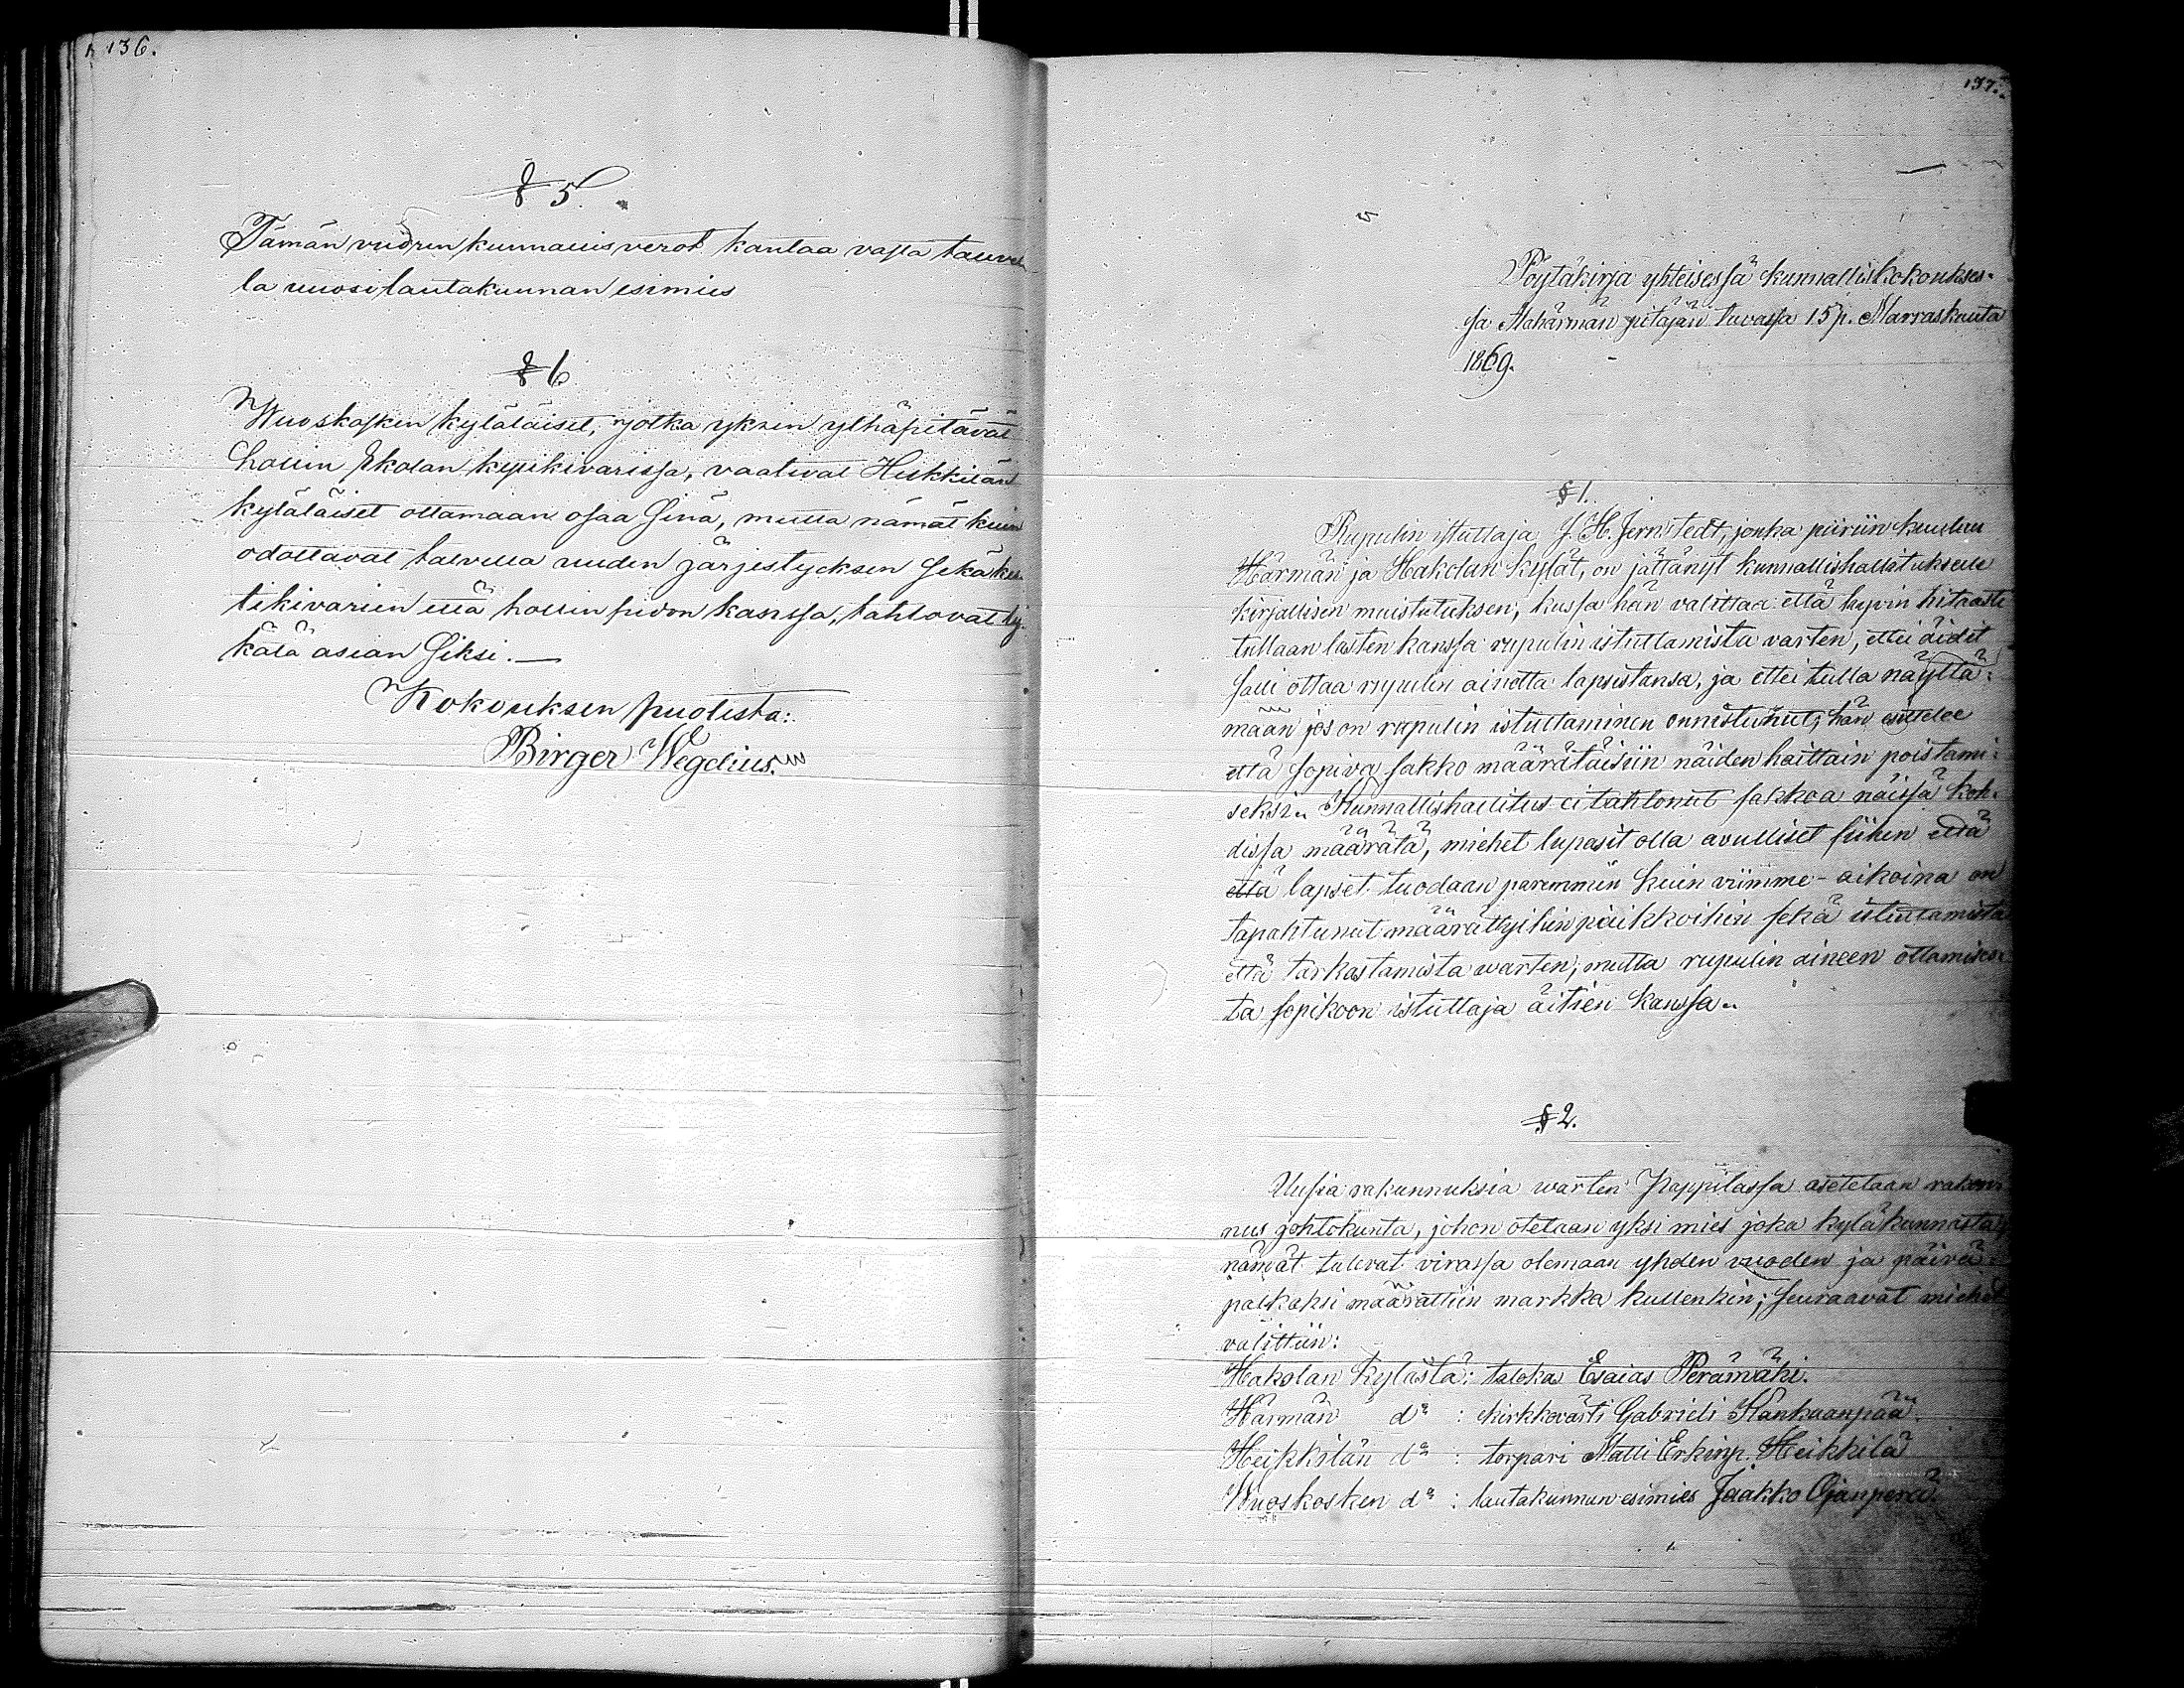 136.
§ 5.
Tämän vuoden kunnallis verot kantaa vasta tauvu
la uuosi lautakunnan esimies
§ 6
Wuoskosken kyläläiset, jotka yksin ylhäpitävät
hollin Ekolan kyitikivarissa, vaativat Heikkilän
kyläläiset ottamaan osaa siinä, mutta nämät kuin
odottavat talvella uuden järjestycksen sekä kes-
tikivariin että hollin pidon kanssa, tahtovat ly-
kätä asian siksi. —
Kokouksen puolesta:
Birger Wegelius.
137.
Pöytäkirja yhteisessä kunnalliskokoukses-
sa Alahärmän pitäjän tuvassa 15 p. Marraskuuta
1869.
§ 1.
Rupulin istuttaja J. H. Jernstedt, jonka piiriin kuuluu
Härmän ja Hakolan kylät, on jättänyt kunnallishallitukselle
kirjallisen muistutuksen, kussa hän valittaa että hyvin hitaasti
tullaan lasten kanssa rupulin istuttamista varten, ettei äidit
salli ottaa rupulin ainetta lapsistansa, ja ettei tulla näyttä-
mään jos on rupulin istuttaminen onnistunut; hän esittelee
että sopiva sakko määrätäisiin näiden haittain poistami-
seksi. Kunnallishallitus ei tahtonut sakkoa näissä koh-
dissa määrätä, miehet lupasit olla avulliset siihen että
että lapset tuodaan paremmin kuin viimme-aikoina on
tapahtunut määrättyihin paikkoihin sekä istuttamista
että tarkastamista warten; mutta rupulin aineen ottamises-
ta sopikoon istuttaja äitien kanssa.
§ 2.
Uusia rakunnuksia warten Pappilassa asetetaan raken-
nus johtokunta, johon otetaan yksi mies joka kyläkunnasta
nämät tulevat virassa olemaan yhden vuoden ja päivä-
palkaksi määrättiin markka kullenkin; seuraavat miehet
valittiin:
Hakolan kylästä: taloka Esaias Perämäki.
Härmän do : kirkkovärti Gabrieli Hankaanpää
Heikkilän do : torpari Matti Erkinp. Heikkilä
Wuoskosken do : lautakunnan esimies Jaakko Ojanperä.